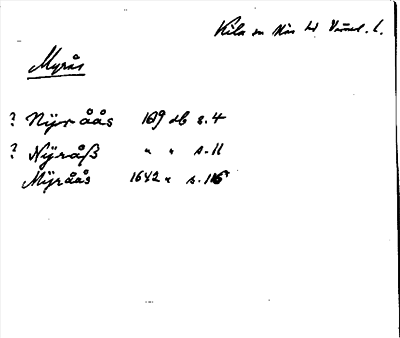 Kila sn Näs hd Värml. l.
Myrås
? Nijråås 1619 db s. 4
? Nijråß " " s. 11
Mijråås 1642 " s. 116